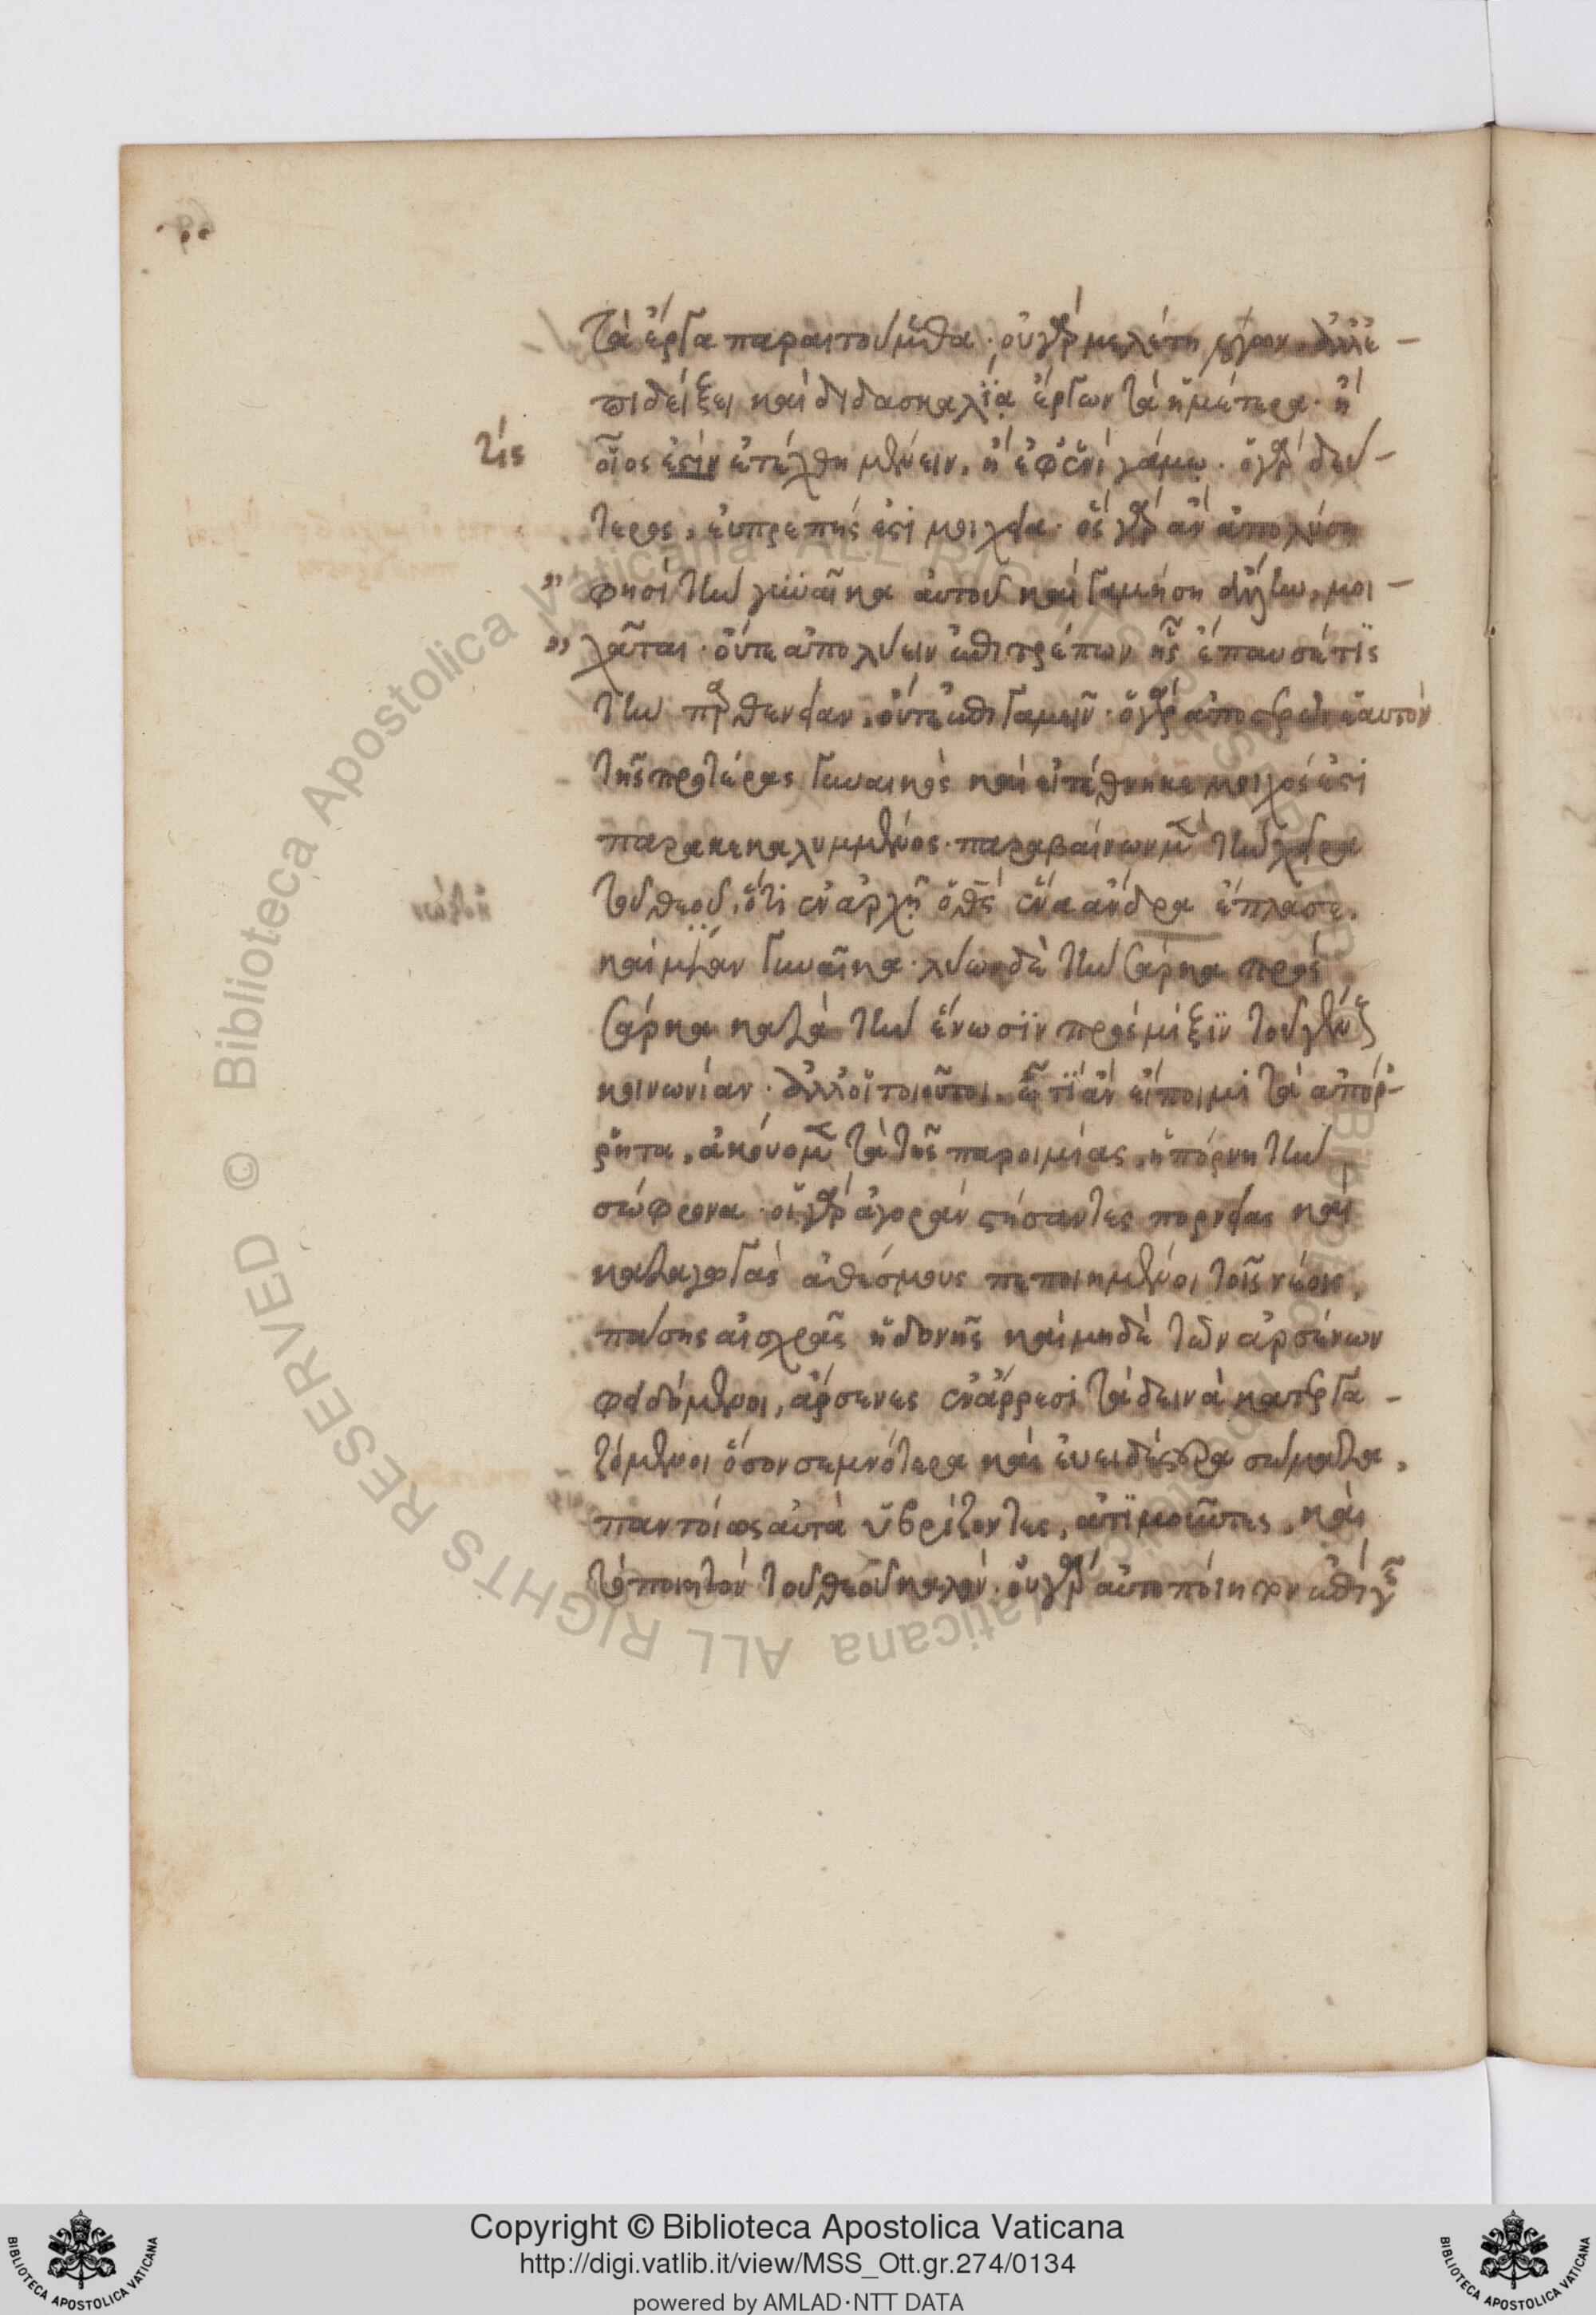 τὰ ἔργα παραιτούμεθα· οὐ γὰρ μελέτη λόγων, ἀλλ' ἐ-
πιδείξει καὶ διδασκαλίᾳ ἔργων τὰ ἡμέτερα· ἢ
τίς
οἷος ἐστὶν ἐτέχθη μένειν, ἢ ἐφ' ἑνὶ γάμῳ· ὁ γὰρ δεύ-
τερος, εὐπρεπής ἐστι μοιχεία· ὃς γὰρ ἂν ἀπολύσῃ
" φησὶ τὴν γυναῖκα αὐτοῦ καὶ γαμήσῃ ἄλλην, μοι-
" χᾶται· οὔτε ἀπολύειν ἐπιτρέπων ἧς ἔπαυσέ τις
τὴν παρθενίαν, οὔτε ἐπιγαμεῖν· ὁ γὰρ ἀποστερῶν ἑαυτὸν
τῆς προτέρας γυναικὸς καὶ εἰ τέθνηκε μοιχός ἐστι
παρακεκαλυμμένος· παραβαίνων μὲν τὴν χεῖρα
τοῦ θεοῦ, ὅτι ἐν ἀρχῇ ὁ θεὸς ἕνα ἄνδρα ἔπλασε,
καὶ μίαν γυναῖκα· λύων δὲ τὴν σάρκα πρὸς
σάρκα κατὰ τὴν ἕνωσιν πρὸς μίξιν τοῦ γένους
κοινωνίαν· ἀλλ' οἱ τοιοῦτοι, ὢ τί ἂν εἴποιμι τὰ ἀπόρ-
ρητα, ἀκούομεν τὰ τῆς παροιμίας, ἡ πόρνη τὴν
σώφρονα· οἱ γὰρ ἀγορὰν στήσαντες πορνείας καὶ
καταγωγὰς ἀθέσμους πεποιημένοι τοῖς νέοις,
πάσης αἰσχρᾶς ἡδονῆς καὶ μηδὲ τῶν ἀρσένων
φειδόμενοι, ἄρσενες ἐν ἄρρεσι τὰ δεινὰ κατεργα-
ζόμενοι ὅσον σεμνότερα καὶ εὐειδέστερα σώματα,
παντοίως αὐτὰ ὑβρίζοντες, ἀτιμοῦντες, καὶ
τὸ ποιητὸν τοῦ θεοῦ καλόν· οὐ γὰρ αὐτοποίητον ἐπὶ γῆς
Copyright © Biblioteca Apostolica Vaticana
http://digi.vatlib.it/view/MSS_Ott.gr.274/0134
powered by AMLAD·NTT DATA